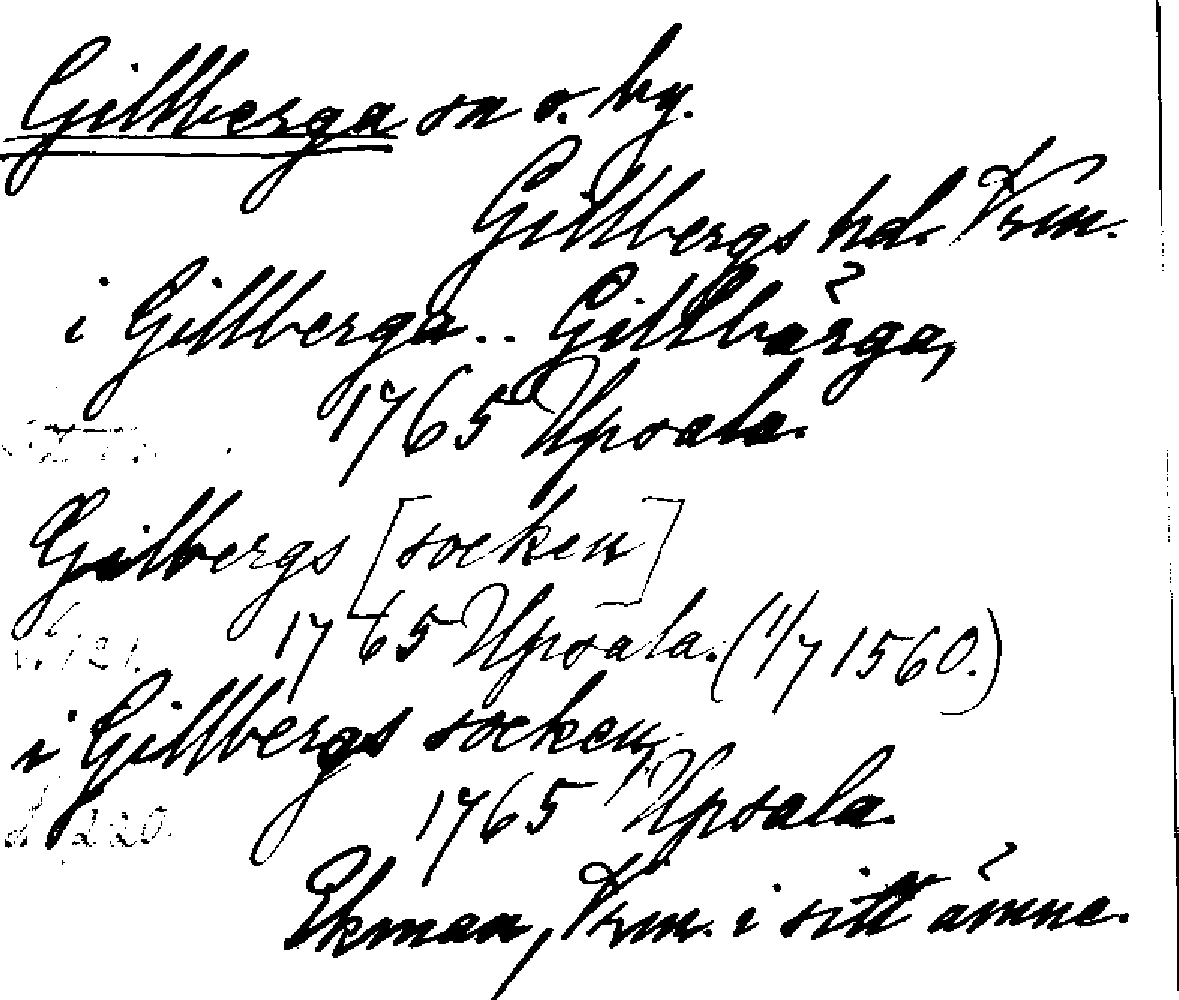 Gillberga sn o. by.
Gillbergs hd. Vrm.
i Gillberga.. Gillbärga,
1765 Upsala.
Gilbergs [socken]
1765 Upsala. (1/7 1560.)
s. 121.
i Gillbergs socken,
1765 Upsala.
s. 220.
Ekman, Vrm. i sitt ämne.